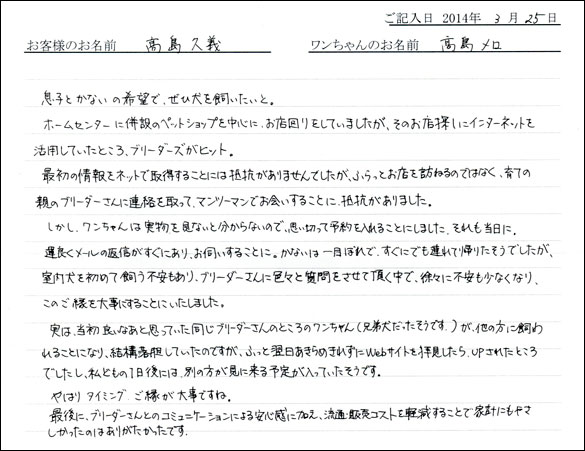 ご記入日 2014年 3 月 25 日
お客様のお名前 高島久義 ワンちゃんのお名前 高島メロ
息子とかないの希望で、ぜひ犬を飼いたいと。
ホームセンターに併設のペットショップを中心に、お店回りをしていましたが、そのお店探しにインターネットを
活用していたところ、ブリーダーズがヒット。
最初の情報をネットで取得することには抵抗がありませんでしたが、ふらっとお店を訪ねるのではなく、育ての
親のブリーダーさんに連絡を取って、マンツーマンでお会いすることに、抵抗がありました。
しかし、ワンちゃんは実物を見ないと分からないので、思い切って予約を入れることにしました。それも当日に。
運良くメールの返信がすぐにあり、お伺いすることに。かないは一目ぼれで、すぐにでも連れて帰りたそうでしたが、
室内犬を初めて飼う不安もあり、ブリーダーさんに色々と質問をさせて頂く中で、徐々に不安も少なくなり、
このご様を大事にすることにいたしました。
実は、当初良いなあと思っていた同じブリーダーさんのところのワンちゃん(兄弟犬だったそうです)が、他の方に飼わ
れることになり、結構落胆していたのですが、ふっと翌日あきらめきれずにWebサイトを拝見したら、UPされたところ
でしたし、私どもの1日後には、別の方が見に来る予定が入っていたそうです。
やはりタイミング、ご様が大事ですね。
最後に、ブリーダーさんとのコミュニケーションによる安心感に加え、流通・販売コストを軽減することで家計にもやさ
しかったのはありがたかったです。